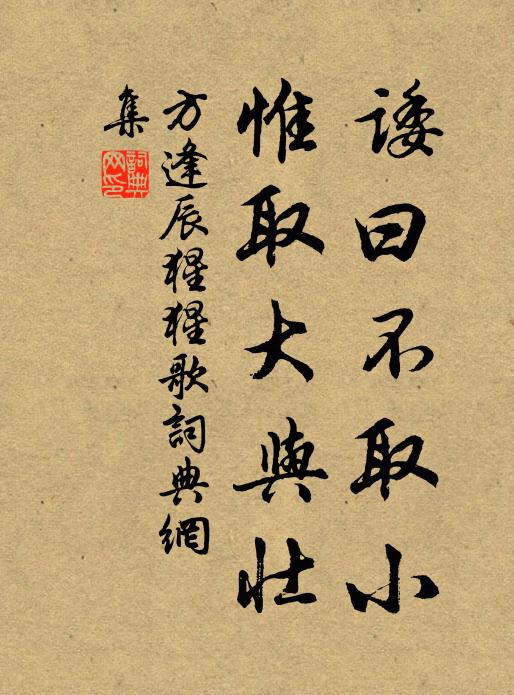 諉曰不取小
惟取大與壯
方逢辰猩猩歌詞典網
集
詞典
网印